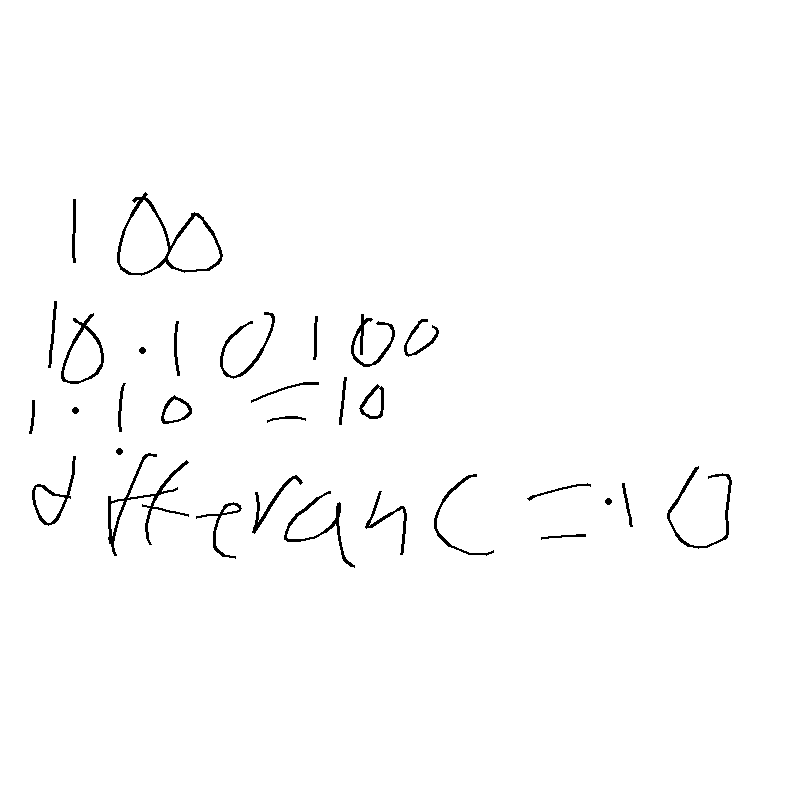 100
10.10 100
1.10 = 10
differanc = .10